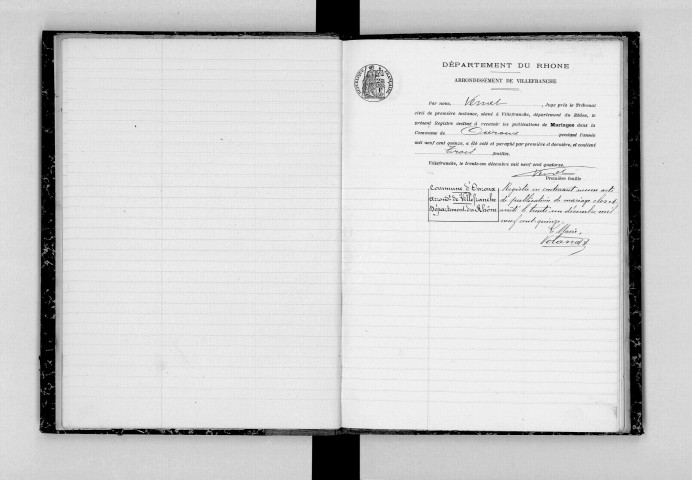 DÉPARTEMENT DU RHONE
ARRONDISSEMENT DE VILLEFRANCHE
RÉPUBLIQUE FRANÇAISE
Par nous, , Juge près le Tribunal
civil de première instance, séant à Villefranche, département du Rhône, le
présent Registre destiné à recevoir les publications de Mariages dans la
Commune de Ouroux pendant l'année
mil neuf cent quinze, a été coté et paraphé par première et dernière, et contient
trois feuilles.
Villefranche, le trente-un décembre mil neuf cent quatorze.
Première feuille
Commune d'Ouroux
arrondt de Villefranche
Département du Rhône
Registre ne contenant aucun acte
de publication de mariage clos et
arrêté le trente un décembre mil
neuf cent quinze.
Le Maire,